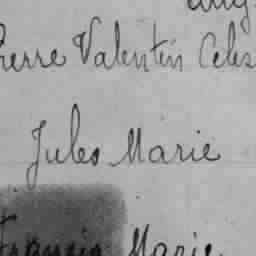 Pierre Valentin Celes
Jules Marie
Francis Marie